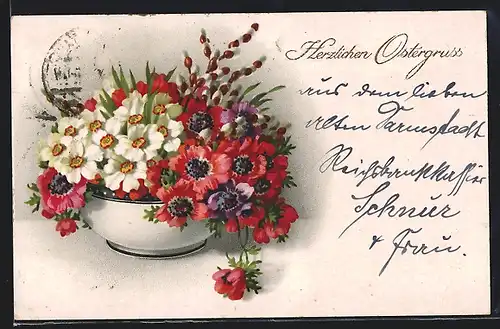 Herzlichen Ostergruss
aus dem lieben
alten Darmstadt
Reichsbankkassier
Schnur
& Frau.